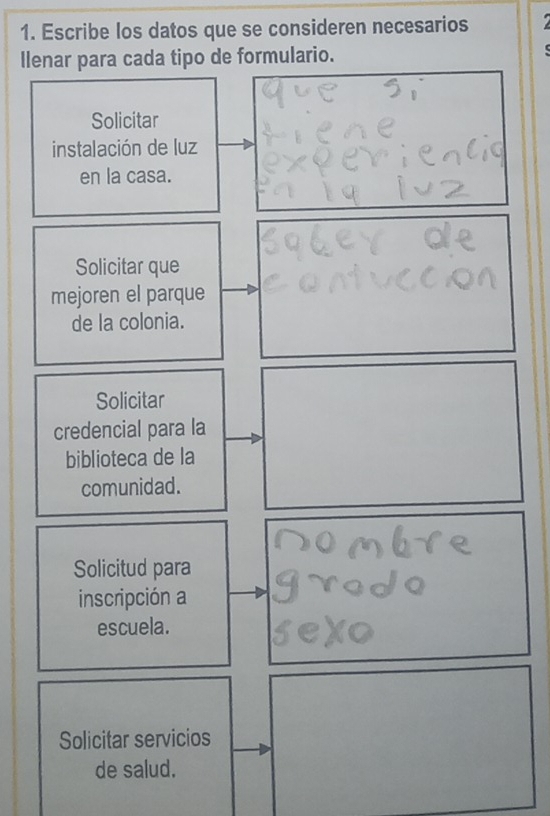 1. Escribe los datos que se consideren necesarios
llenar para cada tipo de formulario.
Solicitar
instalación de luz
en la casa.
que si
tiene
experiencia
en la luz
Solicitar que
mejoren el parque
de la colonia.
saber de
contuccion
Solicitar
credencial para la
biblioteca de la
comunidad.
Solicitud para
inscripción a
escuela.
nombre
grado
sexo
Solicitar servicios
de salud.